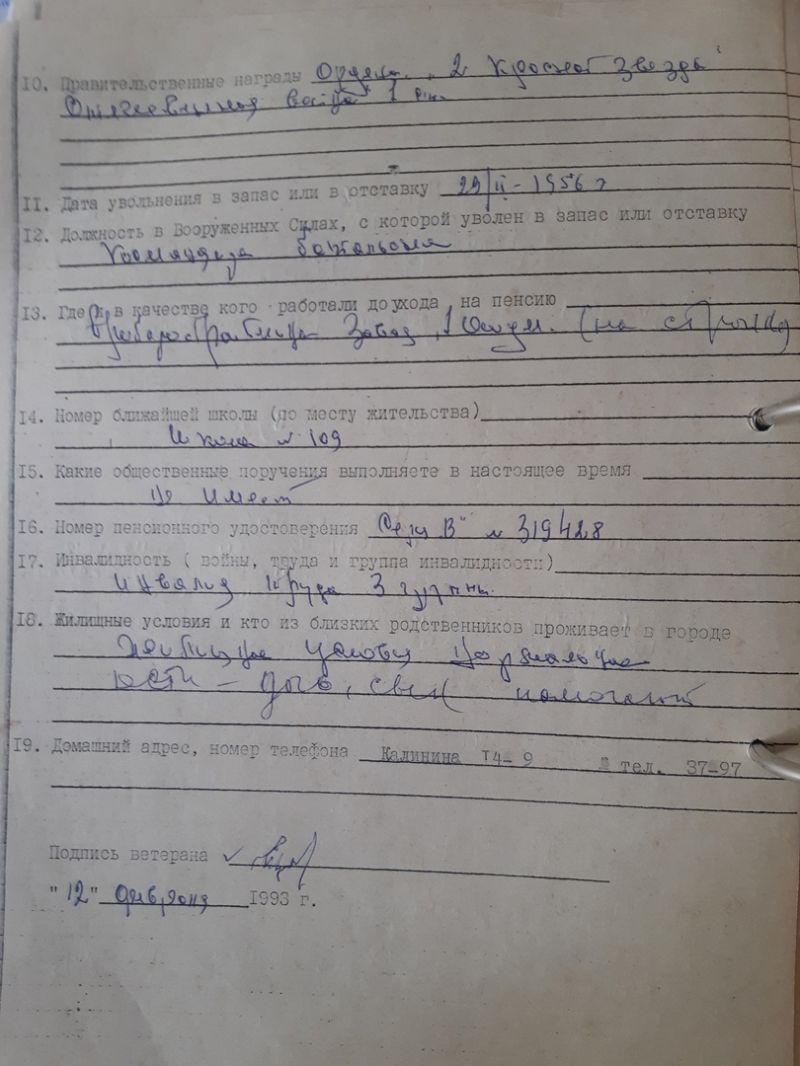 10. Правительственные награды Ордена „2 Красной Звезды"
Отечественная война 1
11. Дата увольнения в запас или в отставку 29/II - 1956 г
12. Должность в Вооруженных Силах, с которой уволен в запас или отставку
Командир батальона
13. Где и в качестве кого работали до ухода на пенсию
завод (на
14. Номер ближайшей школы (по месту жительства)
Школа № 109
15. Какие общественные поручения выполняете в настоящее время
Не имеет
16. Номер пенсионного удостоверения „В" № 319428
17. Инвалидность ( войны, труда и группа инвалидности)
инвалид труда 3 группы.
18. Жилищные условия и кто из близких родственников проживает в городе
условия нормальные
есть - дочь,
19. Домашний адрес, номер телефона Калинина 14- 9 тел. 37-97
Подпись ветерана
"12" февраля 1993 г.